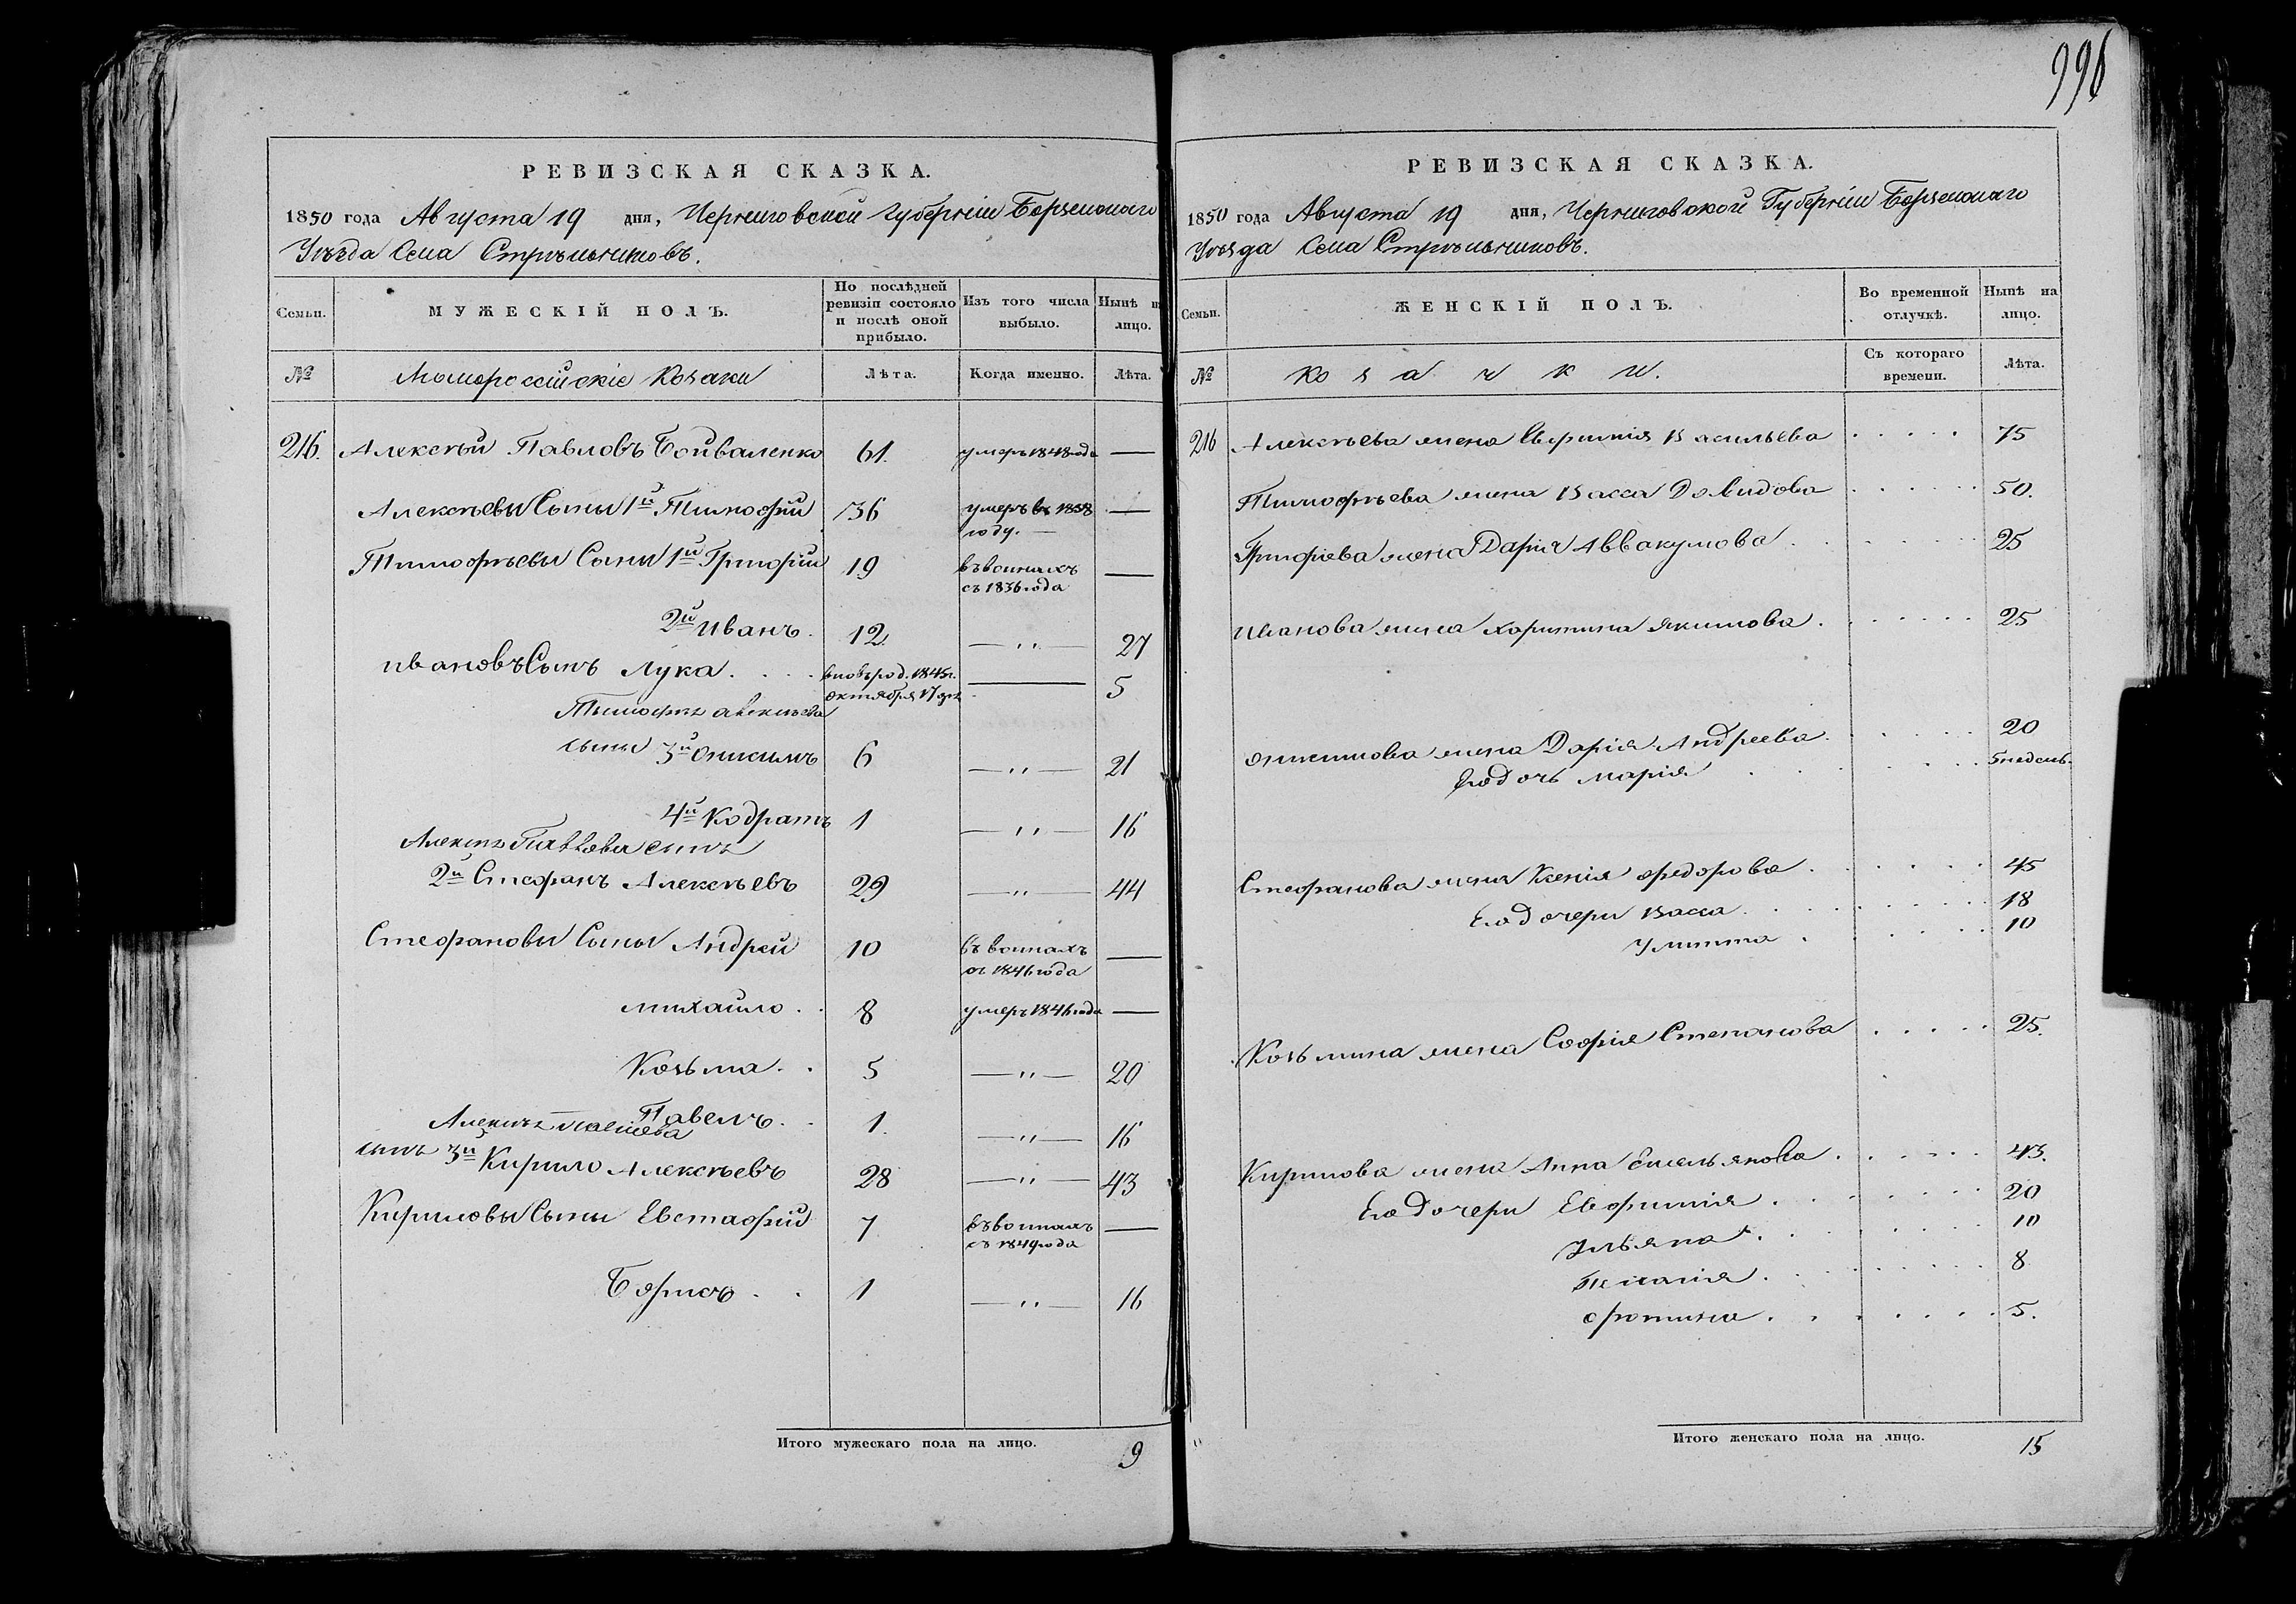 996
РЕВИЗСКАЯ СКАЗКА.
1850 года Августа 19 дня, Черниговской Губерніи Борзенскаго
Уѣзда Села Стрѣльниковъ.
Семьи. МУЖЕСКІЙ ПОЛЪ. По послѣдней ревизіи состояло и послѣ оной прибыло. Изъ того числа выбыло. Нынѣ на лицо.
№ Малороссійскіе Козаки Лѣта. Когда именно. Лѣта.
216. Алексѣй Павловъ 61. умеръ 1848 года —
Алексѣевы Сыны 1й Тимофій 36 умеръ въ 1838 году. —
Тимофѣевы Сыны 1й Григорій 19 въ воинахъ съ 1836 года —
2й Иванъ. 12. —〃— 27
Ивановъ Сынъ Лука . . . . вновь род. 1845 г. октября 17 дня — 5
Тимофѣя Алексѣева
сыны 3й Онисимъ 6 —〃— 21
4й Кодратъ 1 —〃— 16
Алексѣя Павлова сынъ
2й Стефанъ Алексѣевъ 29 —〃— 44
Стефановы Сыны Андрей 10 въ воинахъ съ 1846 года —
Михайло . . 8 умеръ 1846 года —
Козьма . . 5 —〃— 20
Павелъ . . 1. —〃— 16
Алексѣя Павлова
сынъ 3й Кирило Алексѣевъ 28 —〃— 43
Кириловы Сыны Евстафій 7 въ воинахъ съ 1849 года —
Борисъ . . 1 —〃— 16
Итого мужескаго пола на лицо. 9
РЕВИЗСКАЯ СКАЗКА.
1850 года Августа 19 дня, Черниговской Губерніи Борзенскаго
Уѣзда Села Стрѣльниковъ.
Семьи. ЖЕНСКІЙ ПОЛЪ. Во временной отлучкѣ. Нынѣ на лицо.
№ Козачки. Съ котораго времени. Лѣта.
216 Алексѣева жена Евфимія Васильева . . . . . 75
Тимофѣева жена Васса Давидова . . . . . . 50.
Григорiева жена Дарія Аввакумова . . . . . . 25
Иванова жена Харитина Якимова . . . . . . . 25
Онисимова жена Дарія Андреева . . . . . . 20
Его дочь Марія . . . . . . 5 недель.
Стефанова жена Ксенія Федорова . . . . . . 45
Его дочери Васса . . . . . . . . 18
Улита . . . . . . 10
Козьмина жена Софія Степанова . . . . . 25.
Кирилова жена Анна Емельянова . . . . . . 43.
Его дочери Евфимія . . . . . . . 20
Ульяна . . . . . . . 10
Пелагія . . . . . . . . 8
Фотина . . . . . . . 5.
Итого женскаго пола на лицо. 15